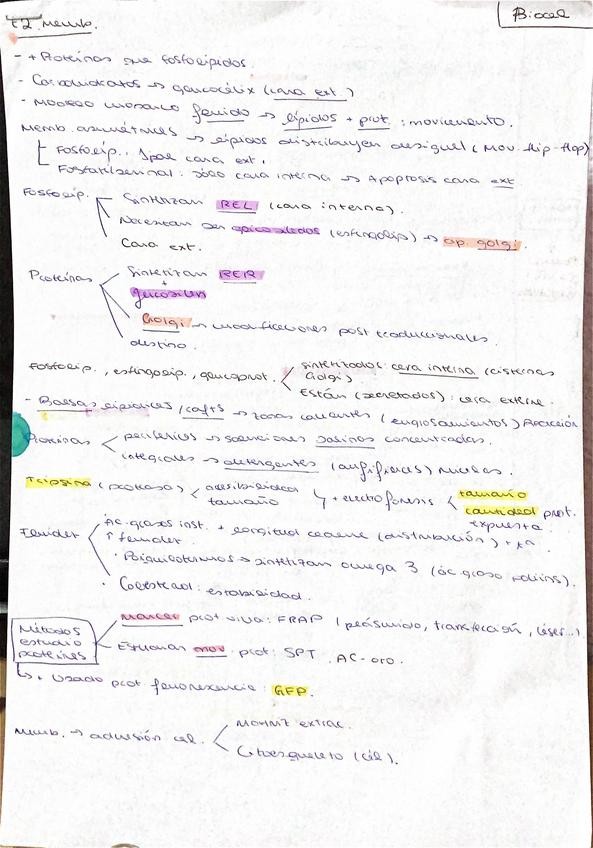 T2 Memb.
Biocel
- + Proteínas que fosfolípidos.
- Carbohidratos → glucocálix (cara ext.)
- Modelo mosaico fluido → lípidos + prot. : movimiento.
Memb. asimétricas → lípidos distribuyen desigual (Mov. flip-flop)
Fosfolíp. : 1por cara ext.
Fosfatilserina: sólo cara interna → Apoptosis cara ext
Fosfolíp. Sintetizan REL (cara interna).
Necesitan ser (esfingolíp) → ap. golgi.
Cara ext.
Proteínas Sintetizan RER
+
glucosilen
Golgi → modificaciones post traduccionales.
destino.
Fosfolíp., esfingolíp., glucoprot. sintetizados: cara interna (cisternas
Golgi)
Están (secretados): cara externa.
- Balsas lipídicas/rafts → zonas (engrosamientos)
Proteínas periféricas → soluciones salinas concentradas.
integrales → detergentes (anfifílicos) micelas.
Tripsina (proteasa) accesibilidad
tamaño + electroforesis tamaño
cantidad prot.
expuesta
Fluidez Ác. grasos inst. + longitud cadena (distribución) + Tª
↑ fluidez
· Poiquilotermos → sintetizan omega 3 (ác. graso poliins).
· Colesterol: estabilidad.
Métodos
estudio
proteínas
Marcar prot viva: FRAP (plásmido, transfección, láser...)
Estudiar mov. prot: SPT. AC-oro.
↳ Usado prot. fluorescencia: GFP.
Memb. → adhesión cel. Matriz extrac.
Citoesqueleto (cél).